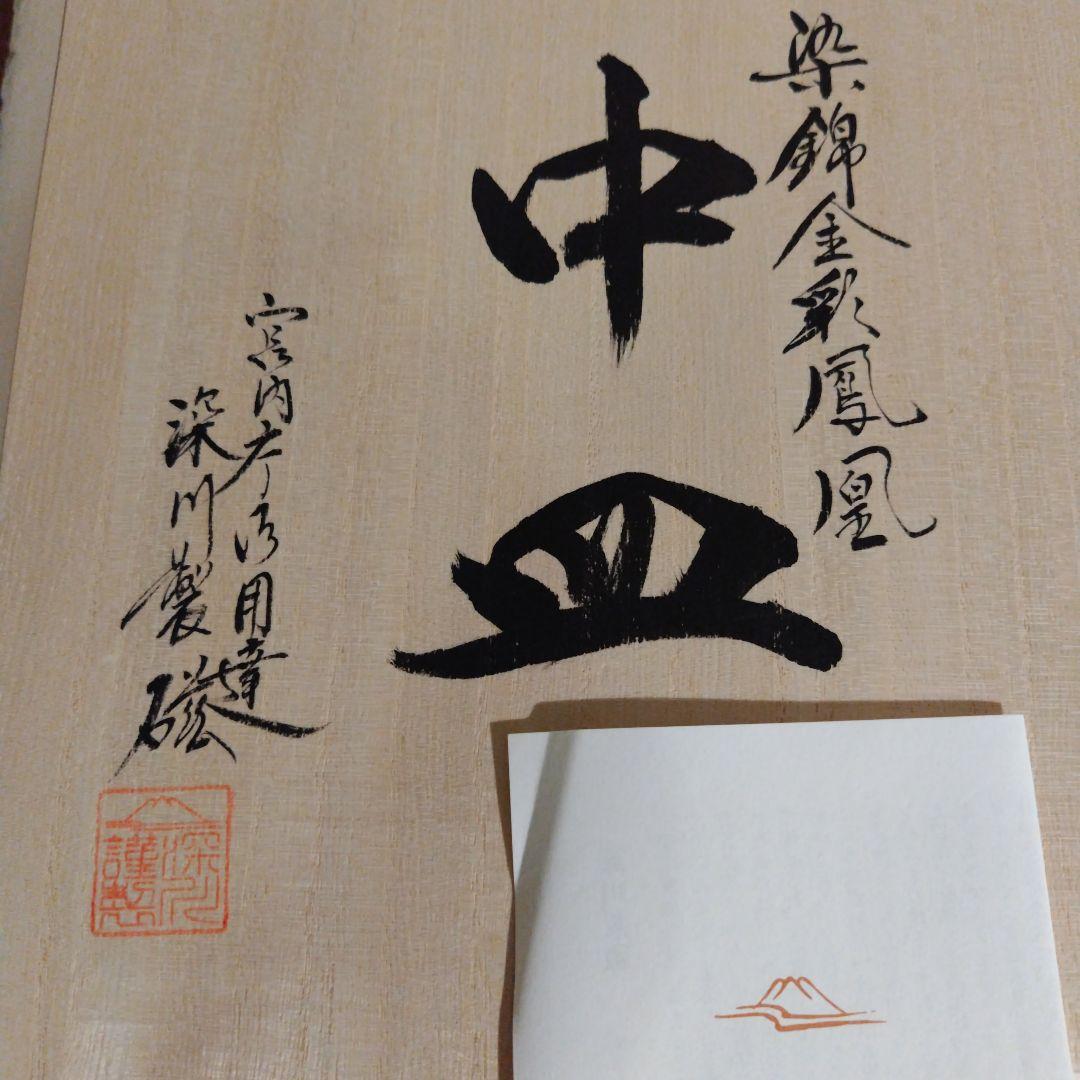 染錦金彩鳳凰
中皿
宮内庁御用達
深川製磁
深川
謹製